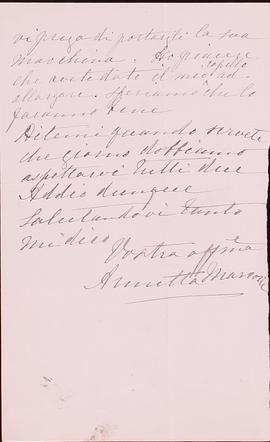 vi prega di portarli la sua
macchina. Ho piacere
che avete dato il
cappello
allargare. Speriamo che lo
faranno bene
Ditemi quando verrete
che giorno dobbiamo
aspettarvi tutti due
Addio dunque
Salutandovi tanto
mi dico
Vostra affma
Annetta Marconi